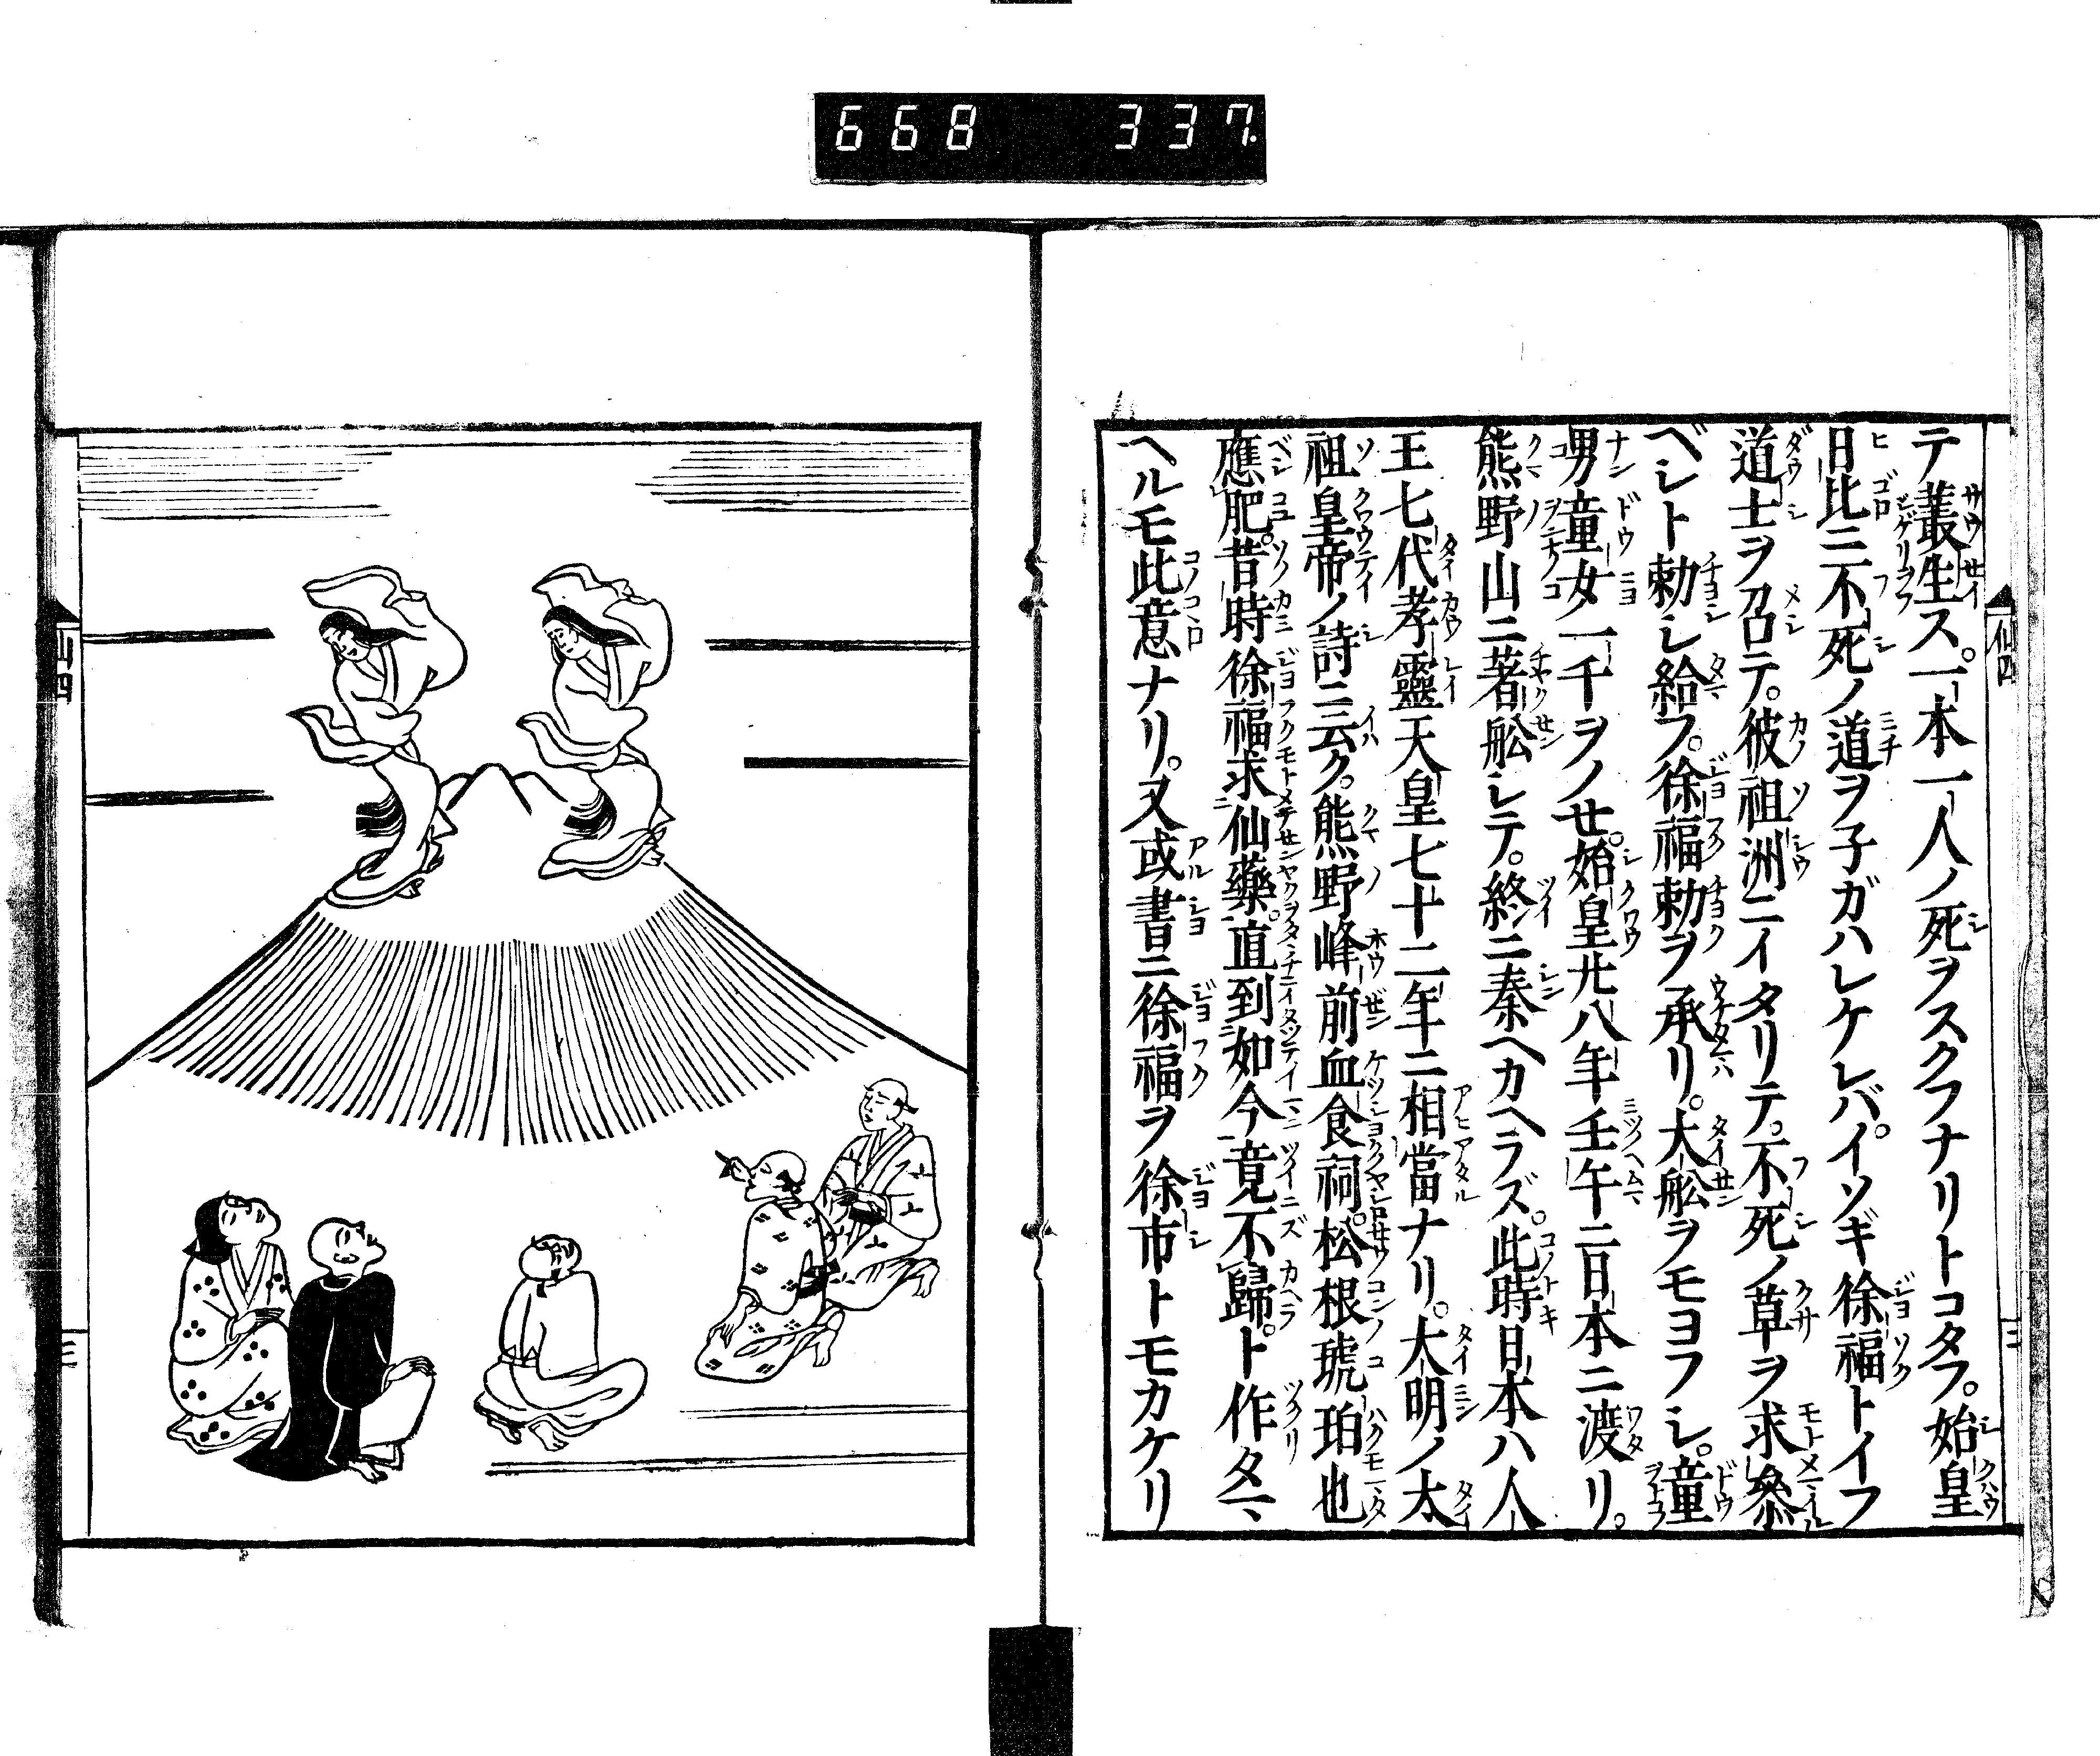 668 337.
テ叢生ス。一本一人ノ死ヲスクフナリトコタフ。始皇
日比ニ不死ノ道ヲ子ガハレケレバ。イソギ徐福トイフ
道士ヲ召テ。彼祖洲ニイタリテ。不死ノ草ヲ求參
ベシト勅シ給フ。徐福勅ヲ承リ。大舩ヲモヨフシ。童
男童女一千ヲノせ。始皇廿八年壬午二日本ニ渡リ。
熊野山ニ著舩シテ。終ニ秦ヘカヘラズ。此時日本ハ人
王七代孝靈天皇七十二年ニ相當ナリ。大明ノ太
祖皇帝ノ詩ニ云ク。熊野峰前血食祠。松根琥珀也
應肥。昔時徐福求仙藥。直到如今竟不歸。ト作タマ
ヘルモ此意ナリ。又或書ニ徐福ヲ徐市トモカケリ
仙四
三